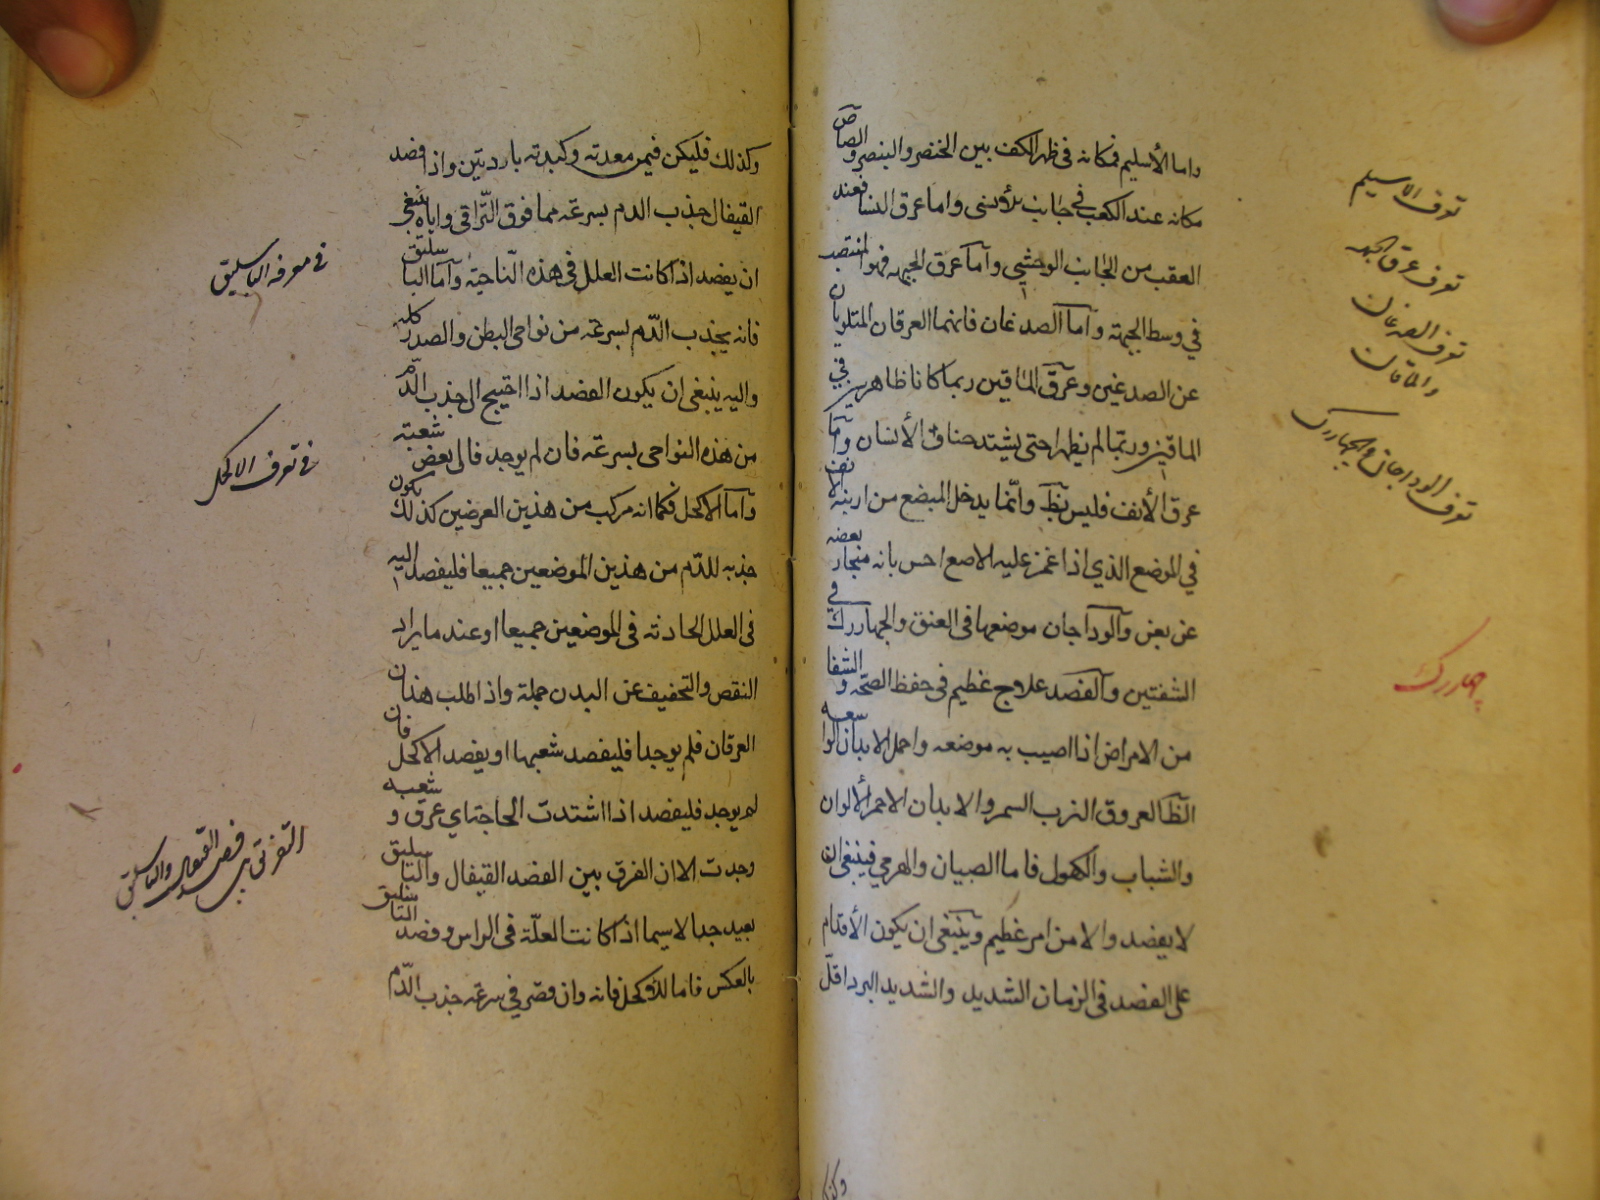 واما الأسليم فمكانه في ظهر الكف بين الخنصر والبنصر و الصافن
مكانه عند الكعب في جانب الأنسى واما عرق النسا فعند
العقب من الجانب الوحشي وأما عرق الجبهه فهو المنتصب
في وسط الجبهة وأما الصدغان فانهما العرقان الملتويان
عن الصدغين وعرق الماقين ربما كانا ظاهرين في
الماقين وربّما لم يظهرا حتى يشتد خناق الأنسان وأما
عرق الأنف فليس يظهر وانّما يدخل المبضع من ارنبة الانف
في الموضع الذي اذا غمز عليه الاصبع احس بانه منحاز بعضه
عن بعض والوداجان موضعهما في العنق والجهاررك في
الشفتين والفصد علاج عظيم في حفظ الصحّه و الشفا
من الامراض اذا اصيب به موضعه واحمل الابدان الواسعه
العروق الزب السمر والابدان الاحمر الألوان
والشباب والكهول فاما الصبيان والهرمي فينبغي ان
لا يفصد والا من امر عظيم وينبغي ان يكون الأقدام
على الفصد في الزمان الشديد والشديد البرد اقلّ
تعرف الاسيلم
تعرف عرق الجبهه
تعرف الصدغان
والماقان
تعرف الوداجان والجهاررك
چهاررك
وكذلك فليكن فيمن معدته وكبدته باردتين واذا فصد
القيفال جذب الدم بسرعة مما فوق التّراقي واياه ينبغي
ان يفصد اذا كانت العلل في هذه النّاحيّة وأما الباسليق
فانه يجذب الدّم بسرعة من نواحي البطن والصدر كله
واليه ينبغي ان يكون الفصد اذا احتيج الى جذب الدّم
من هذه النواحي بسرعة فان لم يوجد فالى بعض شعبته
وأما الاكحل فكما انه مركب من هذين العرضين كذلك يكون
جذبه للدّم من هذين الموضعين جميعا فليفصد اليه
في العلل الحادثة في الموضعين جميعا او عند ما يراد
النقص والتخفيف عن البدن جملة واذا طلب هذان
العرقان فلم يوجدا فليفصد شعبهما او يفصد الاكحل فان
لم يوجد فليفصد اذا اشتدت الحاجة اي عرق و شعبه
وجدت الا ان الفرق بين الفصد القيفال والباسليق
بعيد جدا لاسيما اذا كانت العلّة في الراس وفصد الباسليق
بالعكس فاما الاكحل فانه وان قصّر في سرعة جذب الدّم
في معرفه الباسليق
في تعرف الاكحل
التفرقة بين فصد القيفال والباسليق